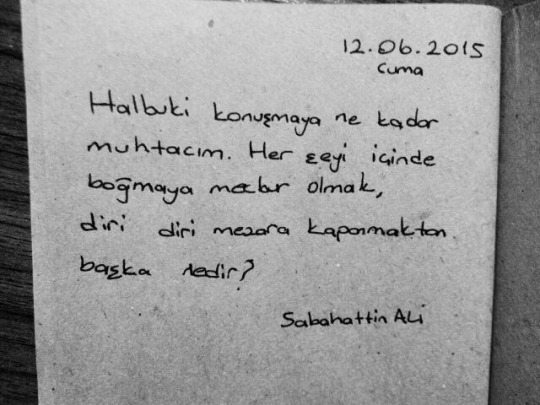 12.06.2015
Cuma
Halbuki konuşmaya ne kadar
muhtacım. Her şeyi içinde
boğmaya mecbur olmak,
diri diri mezara kapanmaktan
başka nedir?
Sabahattin Ali